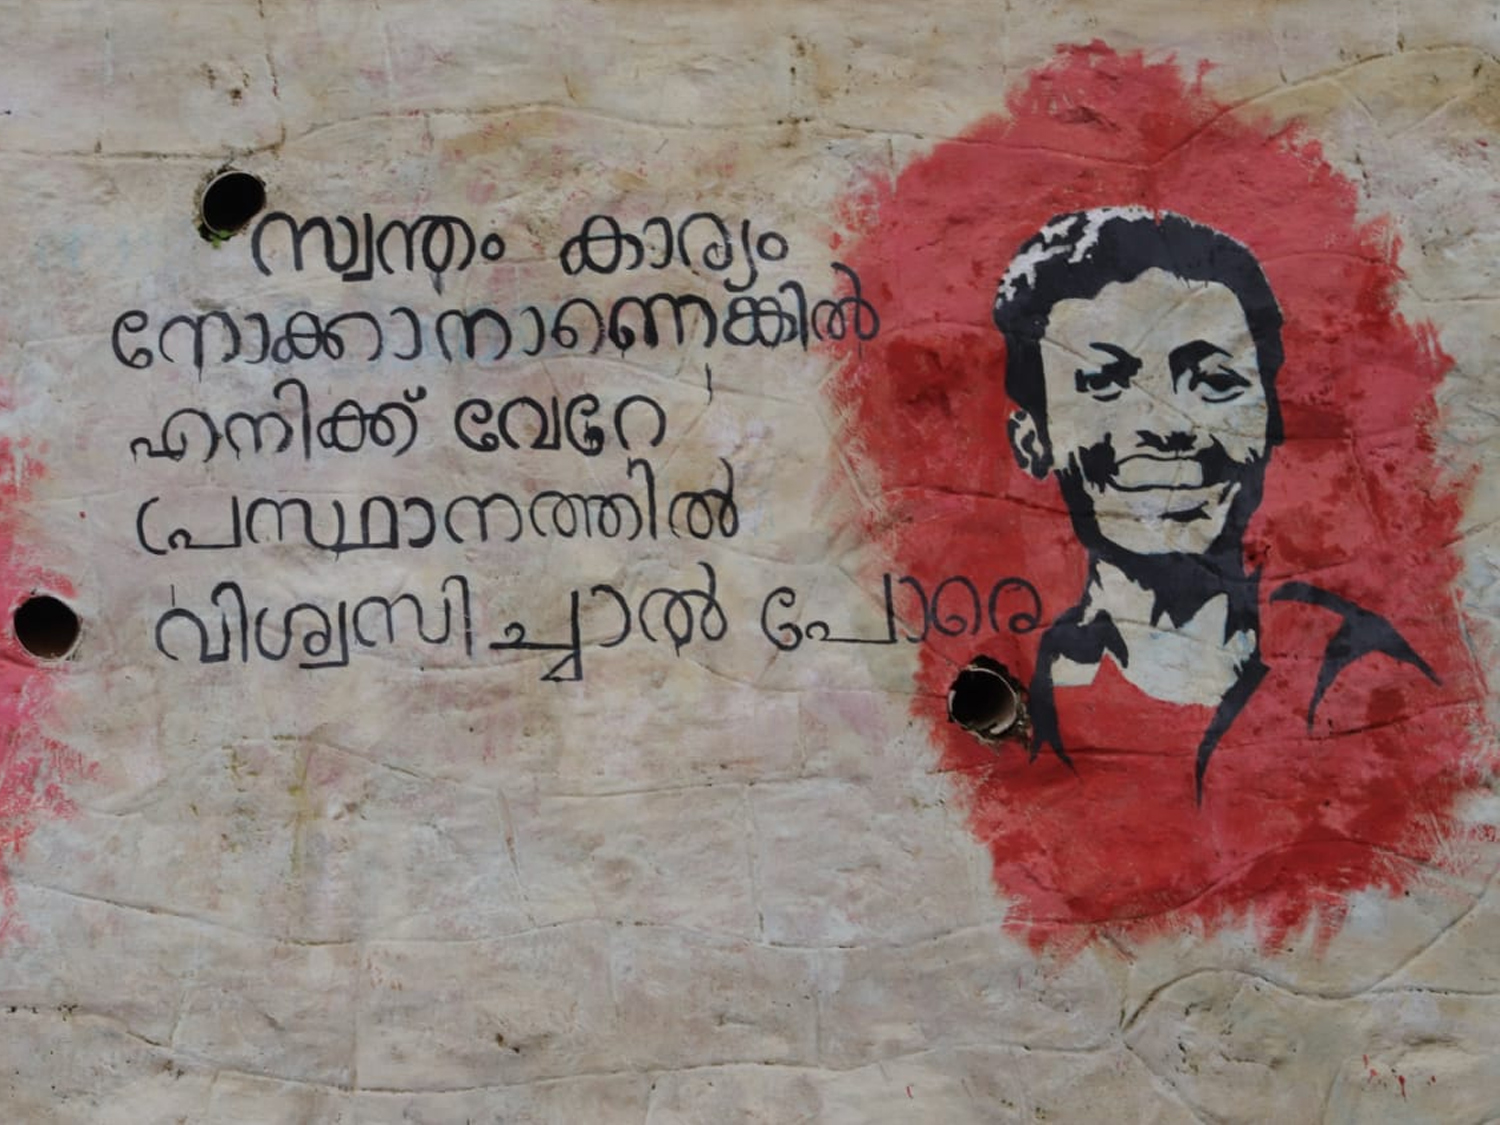 സ്വന്തം കാര്യം
നോക്കാനാണെങ്കിൽ
എനിക്ക് വേറേ
പ്രസ്ഥാനത്തിൽ
വിശ്വസിച്ചാൽ പോരെ